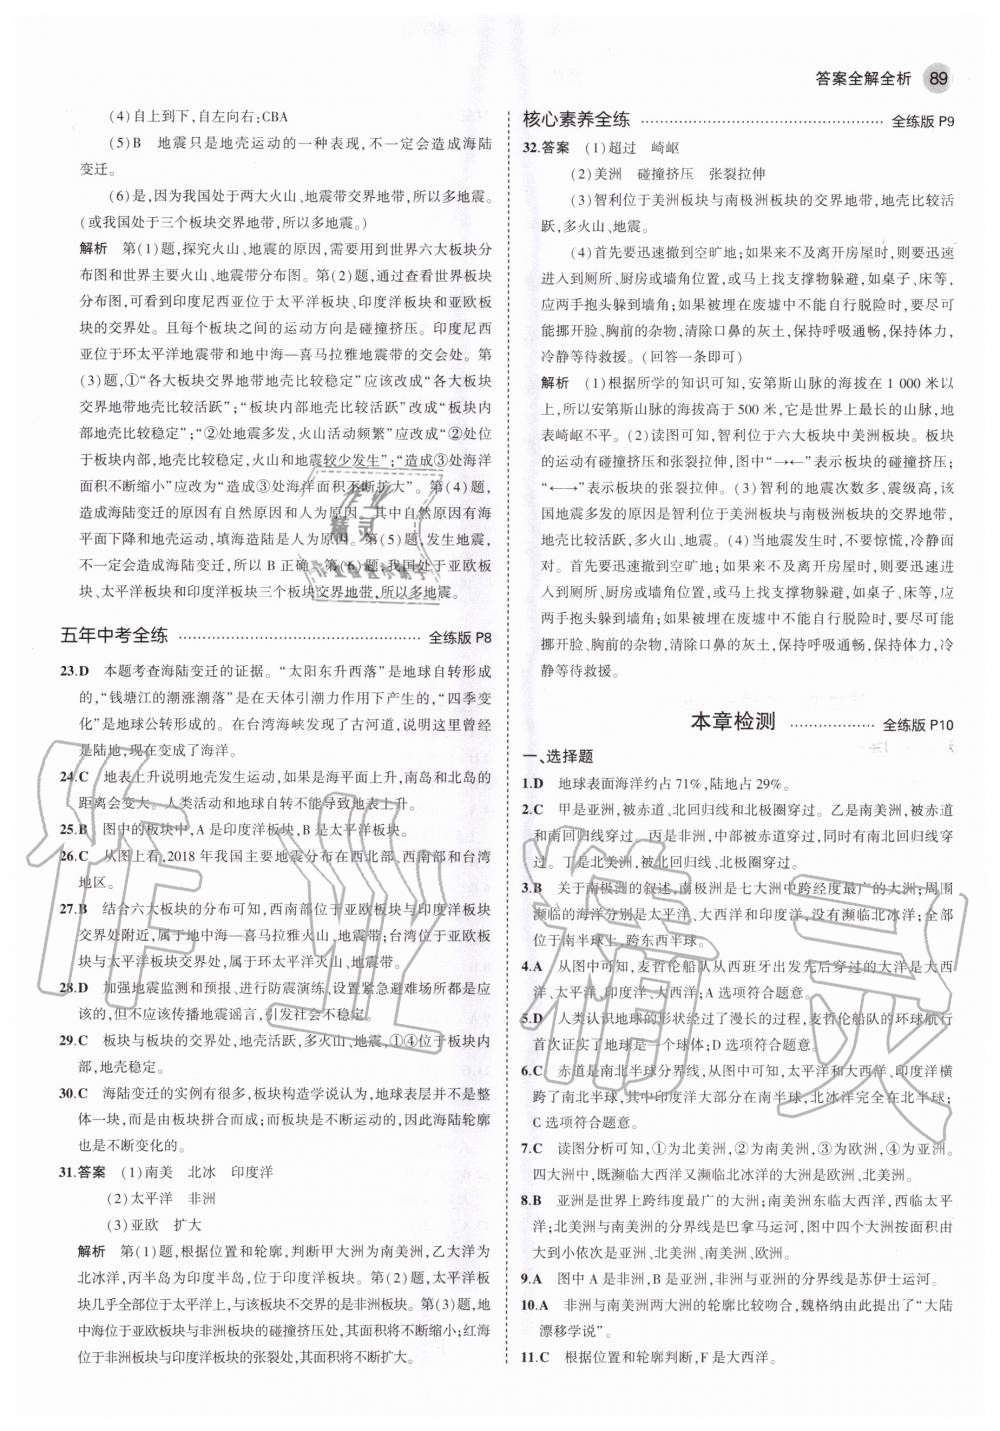 答案全解全析 89
(4)自上到下,自左向右;CBA
(5)B 地震只是地壳运动的一种表现,不一定会造成海陆
变迁。
(6)是,因为我国处于两大火山、地震带交界地带,所以多地震。
(或我国处于三个板块交界地带,所以多地震。)
解析 第(1)题,探究火山、地震的原因,需要用到世界六大板块分
布图和世界主要火山、地震带分布图。第(2)题,通过查看世界板块
分布图,可看到印度尼西亚位于太平洋板块、印度洋板块和亚欧板
块的交界处。且每个板块之间的运动方向是碰撞挤压。印度尼西
亚位于环太平洋地震带和地中海—喜马拉雅地震带的交会处。第
(3)题,①“各大板块交界地带地壳比较稳定”应该改成“各大板块
交界地带地壳比较活跃”;“板块内部地壳比较活跃”改成“板块内
部地壳比较稳定”;“②处地震多发,火山活动频繁”应改成“②处位
于板块内部,地壳比较稳定,火山和地震较少发生”;“造成③处海洋
面积不断缩小”应改为“造成③处海洋面积不断扩大”。第(4)题,
造成海陆变迁的原因有自然原因和人为原因。其中自然原因有海
平面下降和地壳运动,填海造陆是人为原因。第(5)题,发生地震,
不一定会造成海陆变迁,所以 B 正确。第(6)题,我国处于亚欧板
块、太平洋板块和印度洋板块三个板块交界地带,所以多地震。
五年中考全练 全练版 P8
23.D 本题考查海陆变迁的证据。“太阳东升西落”是地球自转形成
的,“钱塘江的潮涨潮落”是在天体引潮力作用下产生的,“四季变
化”是地球公转形成的。在台湾海峡发现了古河道,说明这里曾经
是陆地,现在变成了海洋。
24.C 地表上升说明地壳发生运动,如果是海平面上升,南岛和北岛的
距离会变大。人类活动和地球自转不能导致地表上升。
25.B 图中的板块中,A 是印度洋板块,B 是太平洋板块。
26.C 从图上看,2018 年我国主要地震分布在西北部、西南部和台湾
地区。
27.B 结合六大板块的分布可知,西南部位于亚欧板块与印度洋板块
交界处附近,属于地中海—喜马拉雅火山、地震带;台湾位于亚欧板
块与太平洋板块交界处,属于环太平洋火山、地震带。
28.D 加强地震监测和预报、进行防震演练、设置紧急避难场所都是应
该的,但不应该传播地震谣言,引发社会不稳定。
29.C 板块与板块的交界处,地壳活跃,多火山、地震,①④位于板块内
部,地壳稳定。
30.C 海陆变迁的实例有很多,板块构造学说认为,地球表层并不是整
体一块,而是由板块拼合而成;而板块是不断运动的,因此海陆轮廓
也是不断变化的。
31.答案 (1)南美 北冰 印度洋
(2)太平洋 非洲
(3)亚欧 扩大
解析 第(1)题,根据位置和轮廓,判断甲大洲为南美洲,乙大洋为
北冰洋,丙半岛为印度半岛,位于印度洋板块。第(2)题,太平洋板
块几乎全部位于太平洋上,与该板块不交界的是非洲板块。第(3)题,地
中海位于亚欧板块与非洲板块的碰撞挤压处,其面积将不断缩小;红海
位于非洲板块与印度洋板块的张裂处,其面积将不断扩大。
核心素养全练 全练版 P9
32.答案 (1)超过 崎岖
(2)美洲 碰撞挤压 张裂拉伸
(3)智利位于美洲板块与南极洲板块的交界地带,地壳比较活
跃,多火山、地震。
(4)首先要迅速撤到空旷地;如果来不及离开房屋时,则要迅速
进入到厕所、厨房或墙角位置,或马上找支撑物躲避,如桌子、床等,
应两手抱头躲到墙角;如果被埋在废墟中不能自行脱险时,要尽可
能挪开脸、胸前的杂物,清除口鼻的灰土,保持呼吸通畅,保持体力,
冷静等待救援。(回答一条即可)
解析 (1)根据所学的知识可知,安第斯山脉的海拔在 1 000 米以
上,所以安第斯山脉的海拔高于 500 米,它是世界上最长的山脉,地
表崎岖不平。(2)读图可知,智利位于六大板块中美洲板块。板块
的运动有碰撞挤压和张裂拉伸,图中“→←”表示板块的碰撞挤压;
“←→”表示板块的张裂拉伸。(3)智利的地震次数多、震级高,该
国地震多发的原因是智利位于美洲板块与南极洲板块的交界地带,
地壳比较活跃,多火山、地震。(4)当地震发生时,不要惊慌,冷静面
对。首先要迅速撤到空旷地;如果来不及离开房屋时,则要迅速进
入到厕所、厨房或墙角位置,或马上找支撑物躲避,如桌子、床等,应
两手抱头躲到墙角;如果被埋在废墟中不能自行脱险时,要尽可能
挪开脸、胸前的杂物,清除口鼻的灰土,保持呼吸通畅,保持体力,冷
静等待救援。
本章检测 全练版 P10
一、选择题
1.D 地球表面海洋约占 71%,陆地占 29%。
2.C 甲是亚洲,被赤道、北回归线和北极圈穿过。乙是南美洲,被赤道
和南回归线穿过。丙是非洲,中部被赤道穿过,同时有南北回归线穿
过。丁是北美洲,被北回归线、北极圈穿过。
3.B 关于南极洲的叙述,南极洲是七大洲中跨经度最广的大洲;周围
濒临的海洋分别是太平洋、大西洋和印度洋,没有濒临北冰洋;全部
位于南半球上,跨东西半球。
4.A 从图中可知,麦哲伦船队从西班牙出发先后穿过的大洋是大西
洋、太平洋、印度洋、大西洋;A 选项符合题意。
5.D 人类认识地球的形状经过了漫长的过程,麦哲伦船队的环球航行
首次证实了地球是一个球体;D 选项符合题意。
6.C 赤道是南北半球分界线,从图中可知,太平洋、大西洋、印度洋横
跨了南北半球,其中印度洋大部分在南半球,北冰洋完全在北半球;
C 选项符合题意。
7.C 读图分析可知,①为北美洲,②为南美洲,③为欧洲,④为亚洲。
四大洲中,既濒临大西洋又濒临北冰洋的大洲是欧洲、北美洲。
8.B 亚洲是世界上跨纬度最广的大洲;南美洲东临大西洋,西临太平
洋;北美洲与南美洲的分界线是巴拿马运河,图中四个大洲按面积由
大到小依次是亚洲、北美洲、南美洲、欧洲。
9.A 图中 A 是非洲,B 是亚洲,非洲与亚洲的分界线是苏伊士运河。
10.A 非洲与南美洲两大洲的轮廓比较吻合,魏格纳由此提出了“大陆
漂移学说”。
11.C 根据位置和轮廓判断,F 是大西洋。
作业精灵